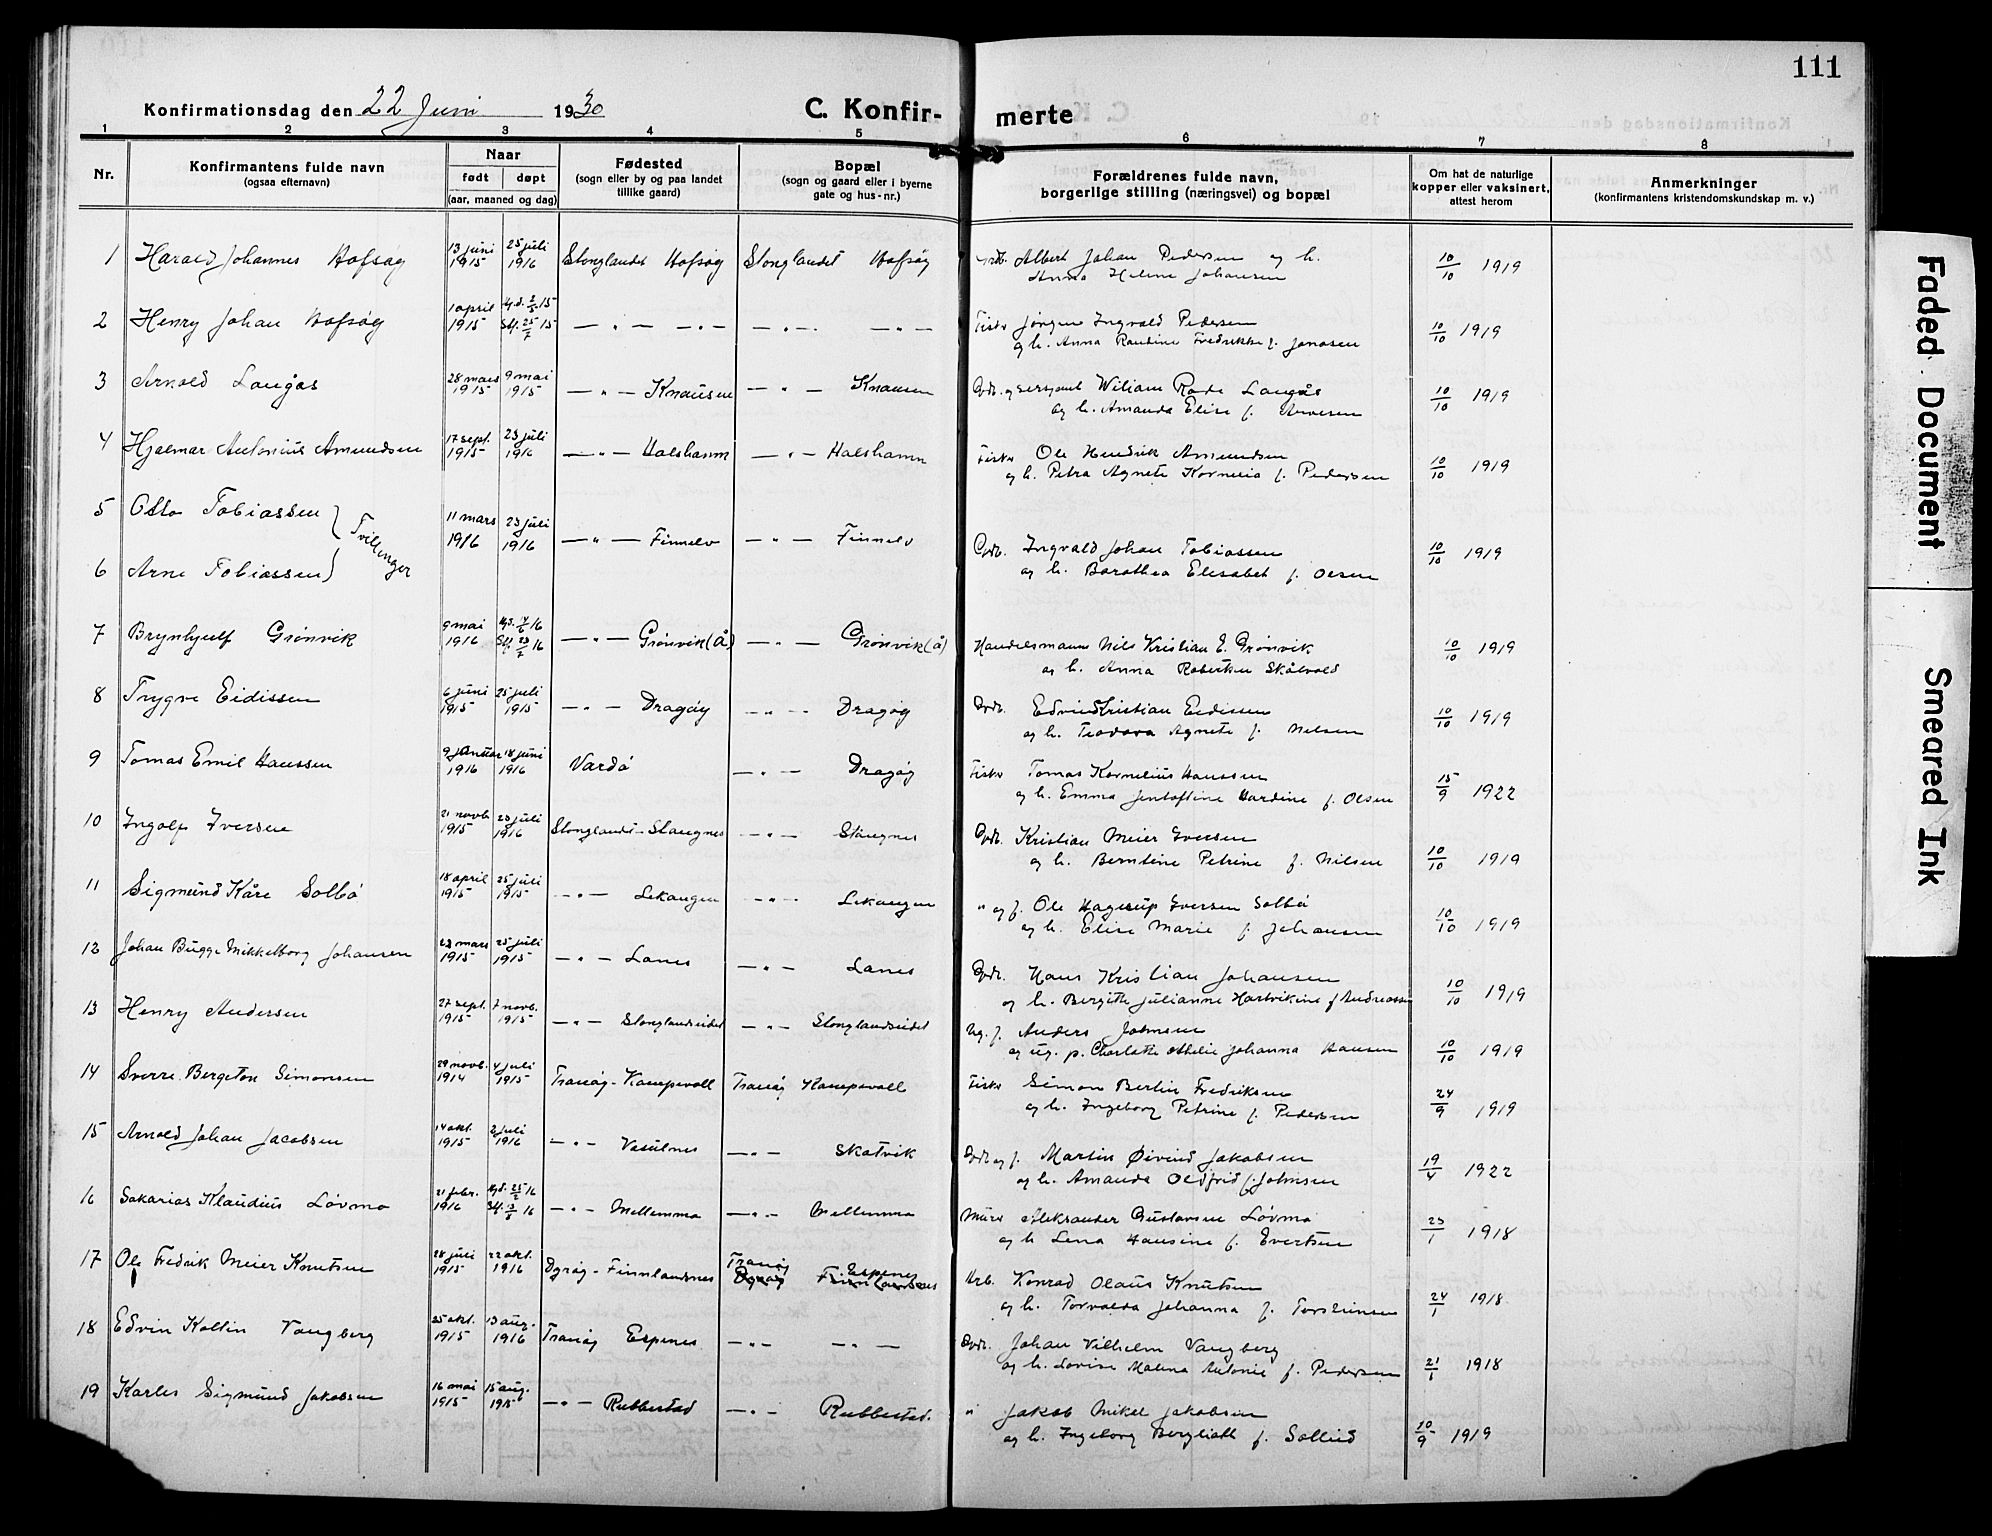 111
Konfirmationsdag den 22 Juni 1930
C. Konfir- merte
1 2 3 4 5 6 7 8
Nr.
Konfirmantens fulde navn
(ogsaa efternavn)
Naar
født døpt
(aar, maaned og dag)
Fødested
(sogn eller by og paa landet
tillike gaard)
Bopæl
(sogn og gaard eller i byerne
gate og hus-nr.)
Forældrenes fulde navn,
borgerlige stilling (næringsvei) og bopæl
Om hat de naturlige
kopper eller vaksinert,
attest herom
Anmerkninger
(konfirmantens kristendomskundskap m. v.)
1 Harald Johannes Hofsøy 13 juni 1915 25 juli 1916 Stonglandet Hofsøy Stonglandet Hofsøy Albert Johan Pedersen og h. 10/10 1919
Anna Helene Johansen
2 Henry Johan Hofsøy 1 april 1915 Hj.d. 2/5 15 St. 25/7 15 — " — — " — — " — — " — Fisker Jørgen Ingvald Pedersen 10/10 1919
og h. Anna Raudine Fredrikke f. Jonasen
3 Arnold Langås 28 mars 1915 9 mai 1915 — " — Knausen — " — Knausen Gdb. og sersjant Wiliam Rode Langås 10/10 1919
og h. Amanda Elise f. Arnesen
4 Hjalmar Antonius Amundsen 17 sept. 1915 23 juli 1916 — " — Halshamn — " — Halshamn Fisker Ole Hendrik Amundsen 10/10 1919
og h. Petra Agnete Kornelia f. Pedersen
5 Otto Tobiassen } Tvillinger 11 mars 1916 23 juli 1916 — " — Finnelv — " — Finnelv Gdb. Ingvald Johan Tobiassen 10/10 1919
6 Arne Tobiassen og h. Barothea Elesabet f. Olsen
7 Brynhjulf Grønvik 9 mai 1916 Hj.d. 4/6 16 St. 23/7 16 — " — Grønvik (Å) — " — Grønvik (Å) Handelsmann Nils Kristian E. Grønvik 10/10 1919
og h. Anna Robertsen Skålvold
8 Trygve Eidissen 6 juni 1915 25 juli 1915 — " — Dragøy — " — Dragøy Gdb. Edvind Kristian Eidissen 10/10 1919
og h. Teodora Agnete f. Nilsen
9 Tomas Emil Hanssen 9 januar 1916 18 juni 1916 Vardø — " — Dragøy Fisker Tomas Kornelius Hanssen 15/9 1922
og h. Emma Jentoftine Hardine f. Olsen
10 Ingolf Iversen 21 novb. 1915 23 juli 1916 Stonglandet - Stangnes — " — Stangnes Gdb. Kristian Meier Iversen 10/10 1919
og h. Berntine Petrine f. Nilsen
11 Sigmund Kåre Solbø 18 april 1915 25 juli 1915 — " — Lekangen — " — Lekangen " og f. Ole Hagerup Iversen Solbø 10/10 1919
og h. Elise Marie f. Johansen
12 Johan Bugge Mikkelborg Johansen 23 mars 1915 25 juli 1915 — " — Lanes — " — Lanes Gdb. Hans Kristian Johansen 10/10 1919
og h. Bergitte Julianne Hartvikine f. Andreassen
13 Henry Andersen 27 sept. 1915 7 novb. 1915 — " — Stonglandseidet — " — Stonglandseidet Ug. f. Anders Johnsen 10/10 1919
og ug. p. Charlotte Athelie Johanna Hansen
14 Sverre Bergeton Simonsen 29 novb. 1914 4 juli 1915 Tranøy - Kampevoll Tranøy Kampevoll Fisker Simon Bertin Fredriksen 24/9 1919
og h. Ingeborg Petrine f. Pedersen
15 Arnold Johan Jacobsen 14 okt. 1915 2 juli 1916 — " — Vasulnes — " — Skatvik Gdb og f. Martin Øivind Jakobsen 19/4 1922
og h. Amanda Oldfrid f. Johnsen
16 Sakarias Klaudius Løvmo 21 febr. 1916 Hj.d. 25/2 16 St. 13/8 16 — " — Mellemmo — " — Mellemmo Murer Aleksander Gustavsen Løvmo 23/1 1918
og h Lena Hansine f. Evertsen
17 Ole Fredrik Meier Knutsen 28 juli 1915 22 okt. 1916 Dyrøy - Finnlandsnes Tranøy Espenes Dyrøy Finnlandsnes Arb. Konrad Olaus Knutsen 24/1 1918
og h. Torvalda Johanna f. Torsteinsen
18 Edvin Koltin Vangberg 25 okt. 1915 13 aug. 1916 Tranøy Espenes — " — — " — Gdb. Johan Vilhelm Vangberg 21/1 1918
og h. Lovise Malena Antonie f. Pedersen
19 Karles Sigmund Jakobsen 16 mai 1915 15 aug. 1915 — " — Rubbestad — " — Rubbestad. " Jakob Mikel Jakobsen 10/9 1919
og h. Ingeborg Bergliott f. Sollied
Faded Document
Smeared Ink